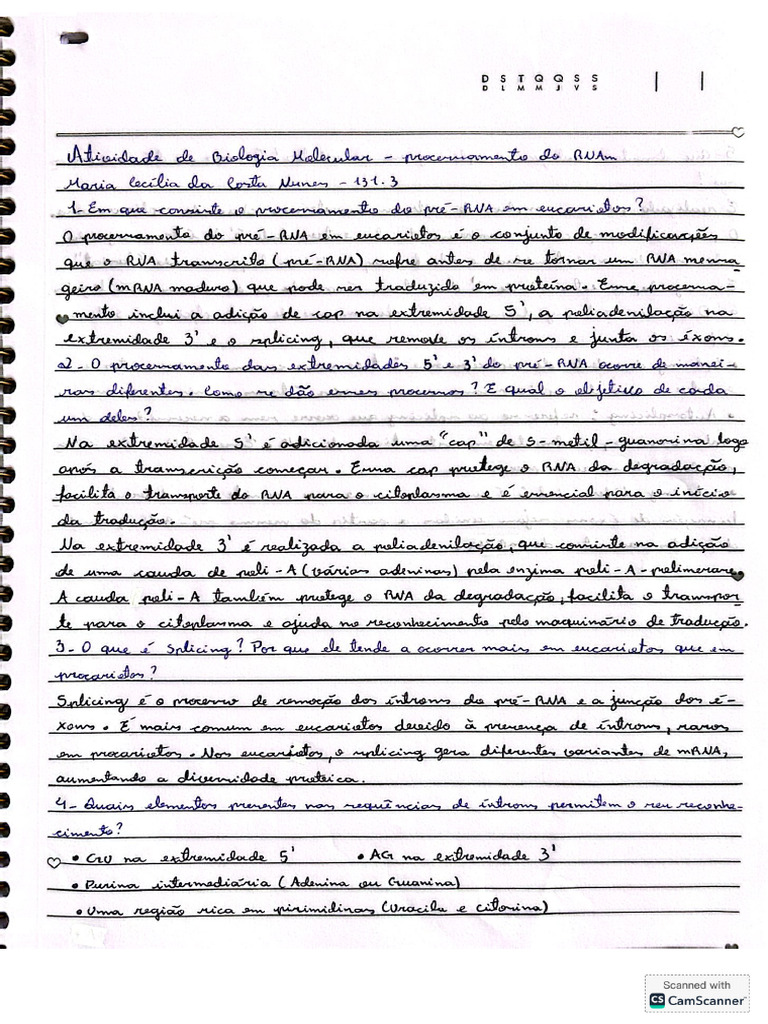 D S T Q Q S S
D L M M J V S
Atividade de Biologia Molecular - processamento do RNAm
Maria Cecília da Costa Nunes - 131.3
1- Em que consiste o processamento do pré-RNA em eucariotos?
O processamento do pré-RNA em eucariotos é o conjunto de modificações
que o RNA transcrito (pré-RNA) sofre antes de se tornar um RNA mensa
geiro (mRNA maduro) que pode ser traduzido em proteína. Esse processa-
mento inclui a adição de cap na extremidade 5', a poliadenilação na
extremidade 3' e o splicing, que remove os íntrons e junta os éxons.
2- O processamento das extremidades 5' e 3' do pré-RNA ocorre de manei-
ras diferentes. Como se dão esses processos? E qual o objetivo de cada
um deles?
Na extremidade 5' é adicionada uma "cap" de 5-metil-guanosina logo
após a transcrição começar. Essa cap protege o RNA da degradação,
facilita o transporte do RNA para o citoplasma e é essencial para o início
da tradução.
Na extremidade 3' é realizada a poliadenilação, que consiste na adição
de uma cauda de poli-A (várias adeninas) pela enzima poli-A-polimerase.
A cauda poli-A também protege o RNA da degradação, facilita o transpor
te para o citoplasma e ajuda no reconhecimento pelo maquinário de tradução.
3- O que é Splicing? Por que ele tende a ocorrer mais em eucariotos que em
procariotos?
Splicing é o processo de remoção dos íntrons do pré-RNA e a junção dos é-
xons. É mais comum em eucariotos devido à presença de íntrons, raros
em procariotos. Nos eucariotos, o splicing gera diferentes variantes de mRNA,
aumentando a diversidade proteica.
4- Quais elementos presentes nas sequências de íntrons permitem o seu reconhe-
cimento?
• GU na extremidade 5' • AG na extremidade 3'
• Purina intermediária (Adenina ou Guanina)
• Uma região rica em pirimidinas (Uracila e citosina)
Scanned with
CS CamScanner